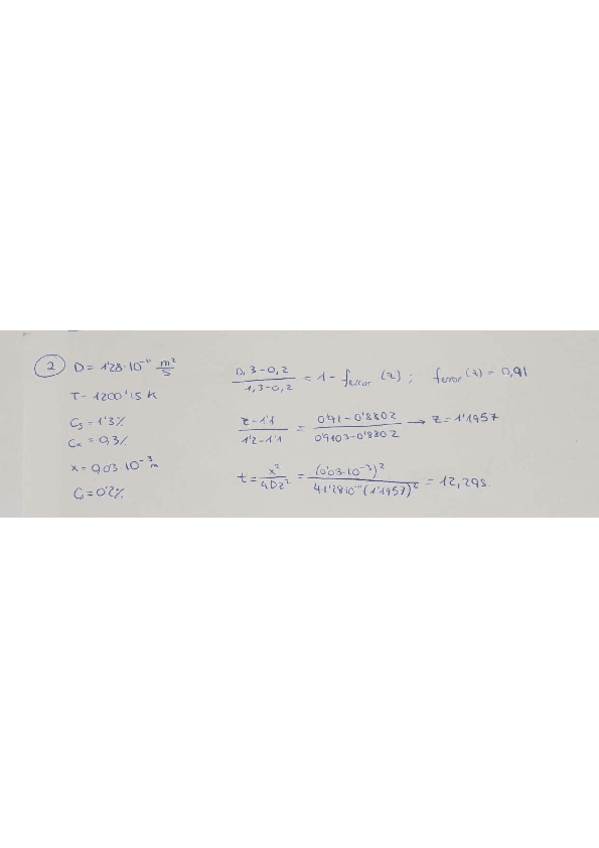 2 D = 1'28·10⁻¹¹ m²/s
T = 1200'15 K
Cs = 1'3%
Cx = 0,3%
x = 0,03·10⁻³ m
C₀ = 0'2%
(0,3-0,2)/(1,3-0,2) = 1 - ferror (z) ; ferror (z) = 0,91
(z-1'1)/(1'2-1'1) = (0'91-0'8802)/(0'9103-0'8802) → z = 1'1957
t = x²/4Dz² = (0'03·10⁻³)²/4·1'28·10⁻¹¹(1'1957)² = 12,29s.